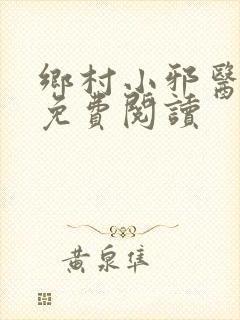 鄉村小邪醫
免費閱讀
黃泉隼